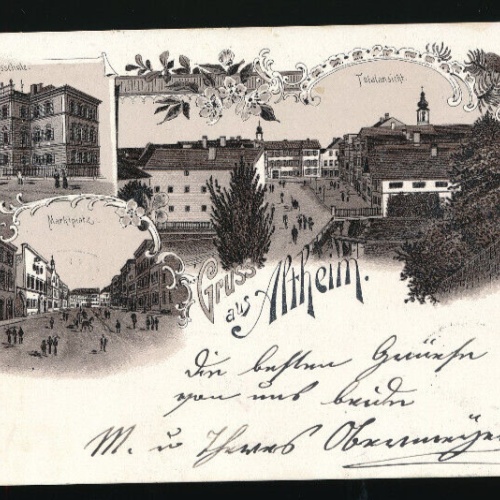 schule.
Totalansicht.
Marktplatz.
Gruss
aus Altheim.
Die besten Grüße
von uns beide
M. u Theres Obermeyer